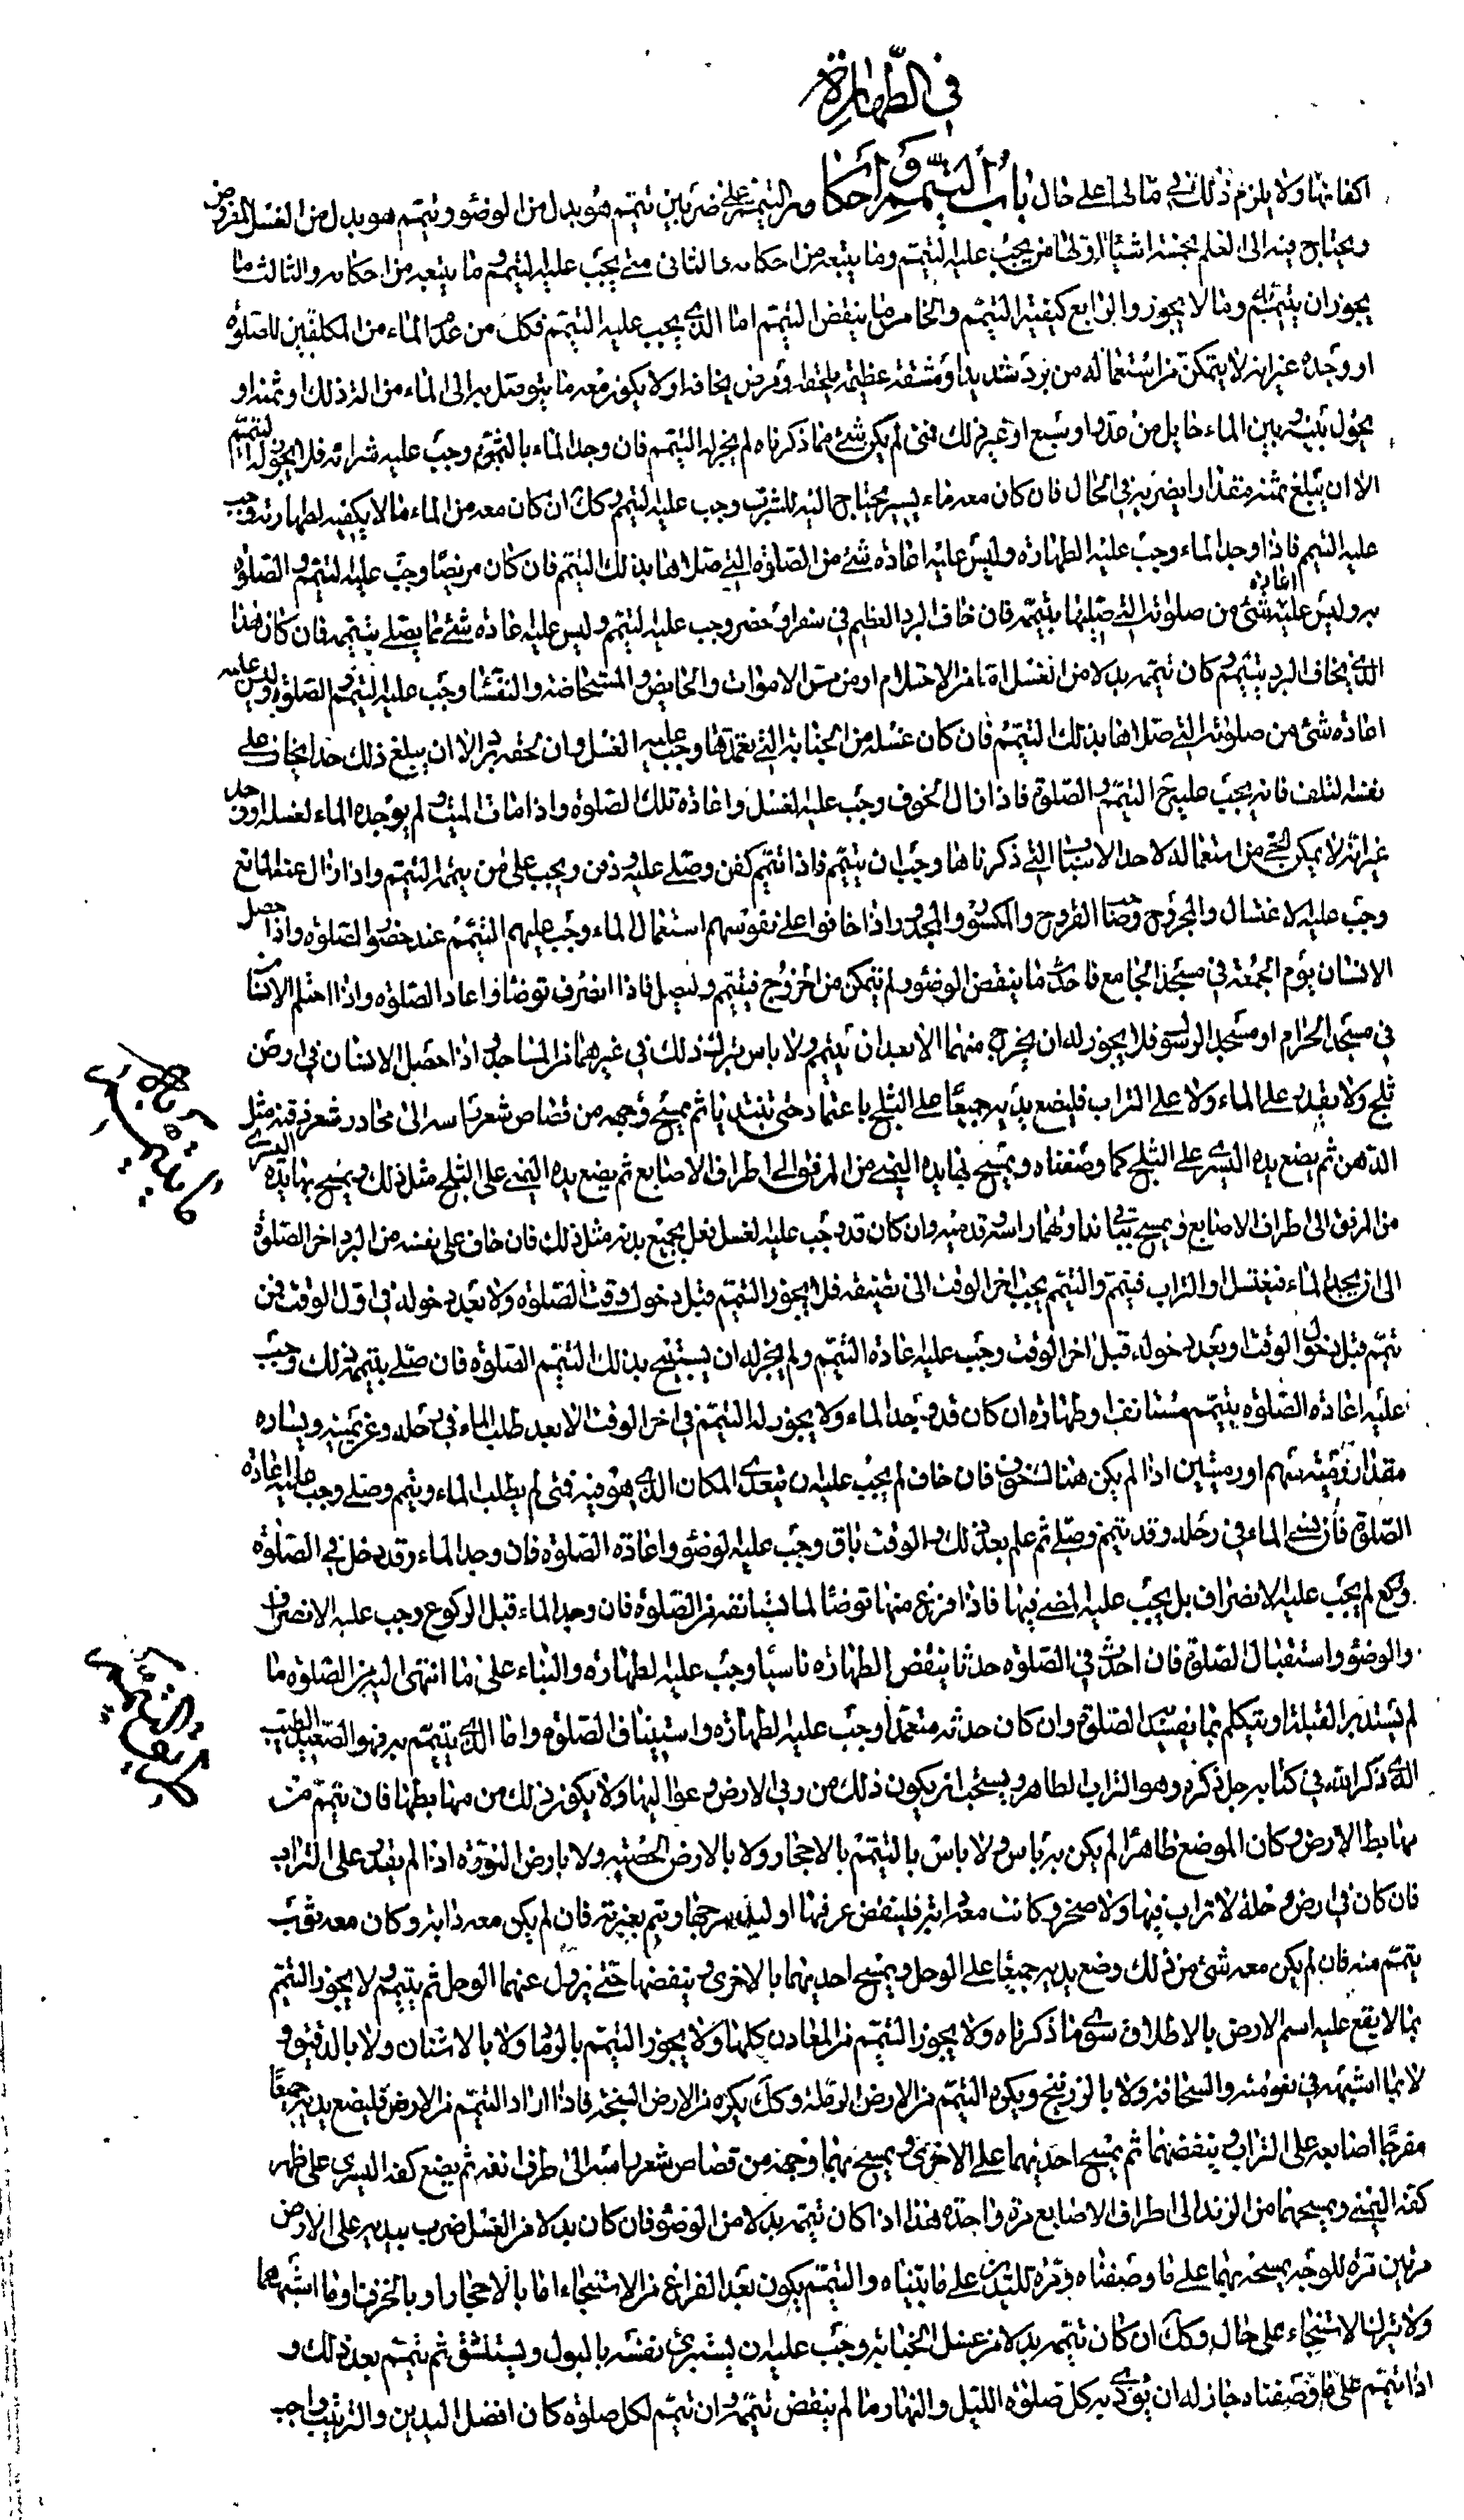 في الطهارة
اكفانها ولا يلزم ذلك في مالها على حال باب التيمم واحكامه التيمم على ضربين تيمم هو بدل من الوضوء وتيمم هو بدل من الغسل المفروض
ويحتاج فيه الى العلم بخمسة اشياء اولها من يجب عليه التيمم وما يتبعه من احكامه والثاني متى يجب عليه التيمم وما يتبعه من احكامه والثالث ما
يجوز ان يتيمم به وما لا يجوز والرابع كيفية التيمم والخامس ما ينقض التيمم اما الذي يجب عليه التيمم فكل من عدم الماء من المكلفين للصلوة
او وجده غير انه لا يتمكن من استعماله من برد شديد او مشقة عظيمة يلحقه او مرض يخافه او لا يكون معه ما يتوصل به الى الماء من آلة ذلك او ثمنه او
يحول بينه وبين الماء حايل من عدو او سبع او غير ذلك فمتى لم يكن شئ مما ذكرناه لم يجز له التيمم فان وجد الماء بالثمن وجب عليه شرائه فلا يجوز له التيمم
الا ان يبلغ ثمنه مقدارا يضر به في الحال فان كان معه ماء يسير يحتاج اليه للشرب وجب عليه التيمم وكك ان كان معه من الماء ما لا يكفيه لطهارته وجب
عليه التيمم فاذا وجد الماء وجب عليه الطهارة وليس عليه اعادة شئ من الصلوة التي صلاها بذلك التيمم فان كان مريضا وجب عليه التيمم والصلوة
به وليس عليه اعادة شئ من صلوته التي صليها بتيممه فان خاف البرد العظيم في سفر او حضر وجب عليه التيمم وليس عليه اعادة شئ مما يصلي بتيممه فان كان هذا
الذي يخاف البرد يتيمم كان تيممه بدلا من الغسل اما من الاحتلام او من مس الاموات والحايض والمستحاضة والنفساء وجب عليه التيمم والصلوة وليس عليه
اعادة شئ من صلوته التي صلاها بذلك التيمم فان كان غسله من الجنابة التي تعمدها وجب عليه الغسل وان لحقه برد الا ان يبلغ ذلك حدا يخاف على
نفسه التلف فانه يجب عليه ح التيمم والصلوة فاذا زال الخوف وجب عليه الغسل واعادة تلك الصلوة واذا مات الميت ولم يوجد الماء لغسله او وجد
غير انه لا يمكن الحي من استعماله لاحد الاسباب التي ذكرناها وجب ان يتيمم فاذا تيمم كفن وصلي عليه ودفن ويجب على من يممه التيمم واذا زال عنه المانع
وجب عليه الاغتسال والمجروح وصاحب القروح والمكسور والمجدور اذا خافوا على نفوسهم استعمال الماء وجب عليهم التيمم عند حضور الصلوة واذا حصل
الانسان يوم الجمعة في مسجد الجامع فاحدث ما ينقض الوضوء ولم يتمكن من الخروج فيتيمم وليصل فاذا انصرف توضا واعاد الصلوة واذا احتلم الانسان
في مسجد الحرام او مسجد الرسول فلا يجوز له ان يخرج منهما الا بعد ان يتيمم ولا باس بترك ذلك في غيرهما من المساجد واذا حصل الانسان في ارض
ثلج ولا يقدر على الماء ولا على التراب فليضع يديه جميعا على الثلج باعتماد حتى تنتديا ثم يمسح وجهه من قصاص شعر راسه الى محادر شعر ذقنه مثل
الدهن ثم يضع يده اليسرى على الثلج كما وصفناه ويمسح بها يده اليمنى من المرفق الى اطراف الاصابع ثم يضع يده اليمنى على الثلج مثل ذلك ويمسح بها يده اليسرى
من المرفق الى اطراف الاصابع ويمسح بباقي نداوتهما راسه وقدميه وان كان قد وجب عليه الغسل فعل بجميع بدنه مثل ذلك فان خاف على نفسه من البرد اخر الصلوة
الى ان يجد الماء فيغتسل او التراب فيتيمم والتيمم يجب اخر الوقت الى تضيقه فلا يجوز التيمم قبل دخول وقت الصلوة ولا بعد دخوله في اول الوقت فمن
تيمم قبل دخول الوقت او بعد دخوله قبل اخر الوقت وجب عليه اعادة التيمم ولم يجز له ان يستبيح بذلك التيمم الصلوة فان صلى بتيممه ذلك وجب
عليه اعادة الصلوة بتيمم مستانف او طهارة ان كان قد وجد الماء ولا يجوز له التيمم في اخر الوقت الا بعد طلب الماء في رحله وعن يمينه ويساره
مقدار رمية سهم او رميتين اذا لم يكن هناك خوف فان خاف لم يجب عليه ان يتعدى المكان الذي هو فيه فمتى لم يطلب الماء وتيمم وصلى وجب عليه اعادة
الصلوة فان نسى الماء في رحله وقد تيمم وصلى ثم علم بعد ذلك والوقت باق وجب عليه الوضوء واعادة الصلوة فان وجد الماء وقد دخل في الصلوة
وركع لم يجب عليه الانصراف بل يجب عليه المضي فيها فاذا فرغ منها توضا لما يستانف من الصلوة فان وجد الماء قبل الركوع وجب عليه الانصراف
والوضوء واستقبال الصلوة فان احدث في الصلوة حدثا ينقض الطهارة ناسيا وجب عليه الطهارة والبناء على ما انتهى اليه من الصلوة ما
لم يستدبر القبلة او يتكلم بما يفسد الصلوة وان كان حدثه متعمدا وجب عليه الطهارة واستيناف الصلوة واما الذي يتيمم به فهو الصعيد الطيب
الذي ذكره الله في كتابه جل ذكره وهو التراب الطاهر ويستحب ان يكون ذلك من ربي الارض وعواليها ولا يكون ذلك من مهابطها فان تيمم من
مهابط الارض وكان الموضع طاهرا لم يكن به باس ولا باس بالتيمم بالاحجار ولا بالارض الجصية ولا بارض النورة اذا لم يقدر على التراب
فان كان في ارض وحلة لا تراب فيها ولا صخر وكانت معه دابة فلينفض عرفها او لبد سرجها ويتيمم بغبرته فان لم يكن معه دابة وكان معه ثوب
يتيمم منه فان لم يكن معه شئ من ذلك وضع يديه جميعا على الوحل ويمسح احديهما بالاخرى وينفضهما حتى يزول عنهما الوحل ثم يتيمم ولا يجوز التيمم
بما لا يقع عليه اسم الارض بالاطلاق سوى ما ذكرناه ولا يجوز التيمم من المعادن كلها ولا يجوز التيمم بالرماد ولا بالاشنان ولا بالدقيق و
لا بما اشبهه في نعومته وانسحاقه ولا بالزرنيخ ويكره التيمم من الارض الرملة وكك يكره من الارض السبخة فاذا اراد التيمم من الارض فليضع يديه جميعا
مفرجا اصابعه على التراب وينفضهما ثم يمسح احديهما على الاخرى ويمسح بهما وجهه من قصاص شعر راسه الى طرف انفه ثم يضع كفه اليسرى على ظهر
كفه اليمنى ويمسحهما من الزند الى اطراف الاصابع مرة واحدة هذا اذا كان تيممه بدلا من الوضوء فان كان بدلا من الغسل ضرب بيديه على الارض
مرتين مرة للوجه يمسحه بهما على ما وصفناه ومرة لليدين على ما بيناه والتيمم يكون بعد الفراغ من الاستنجاء اما بالاحجار او بالخرق او ما اشبههما
ولا يترك الاستنجاء على حال وكك ان كان تيممه بدلا من غسل الجنابة وجب عليه ان يستبرئ نفسه بالبول ويستنشق ثم تيمم بعد ذلك و
اذا تيمم على ما وصفناه جاز له ان يؤدي به كل صلوة الليل والنهار ما لم ينقض تيممه وان تيمم لكل صلوة كان افضل اليدين والترتيب واجب